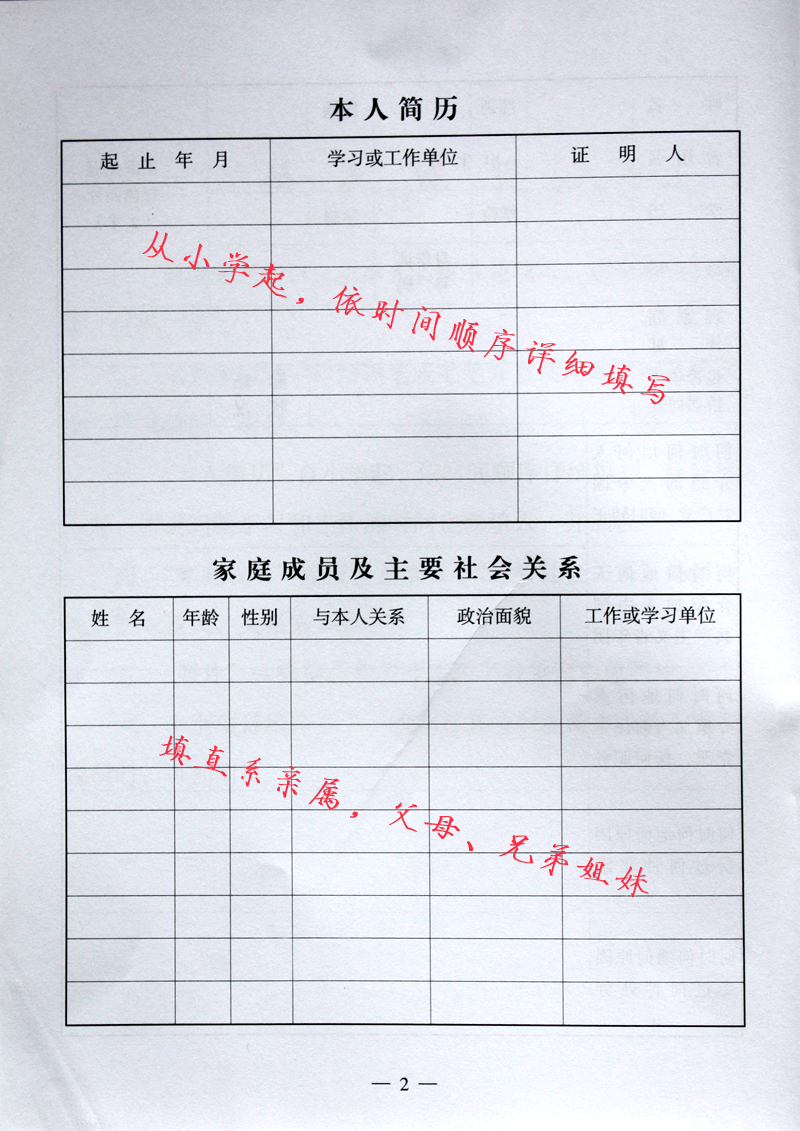 本人简历
起 止 年 月 学习或工作单位 证 明 人
从小学起，依时间顺序详细填写
家庭成员及主要社会关系
姓 名 年龄 性别 与本人关系 政治面貌 工作或学习单位
填直系亲属，父母、兄弟姐妹
— 2 —